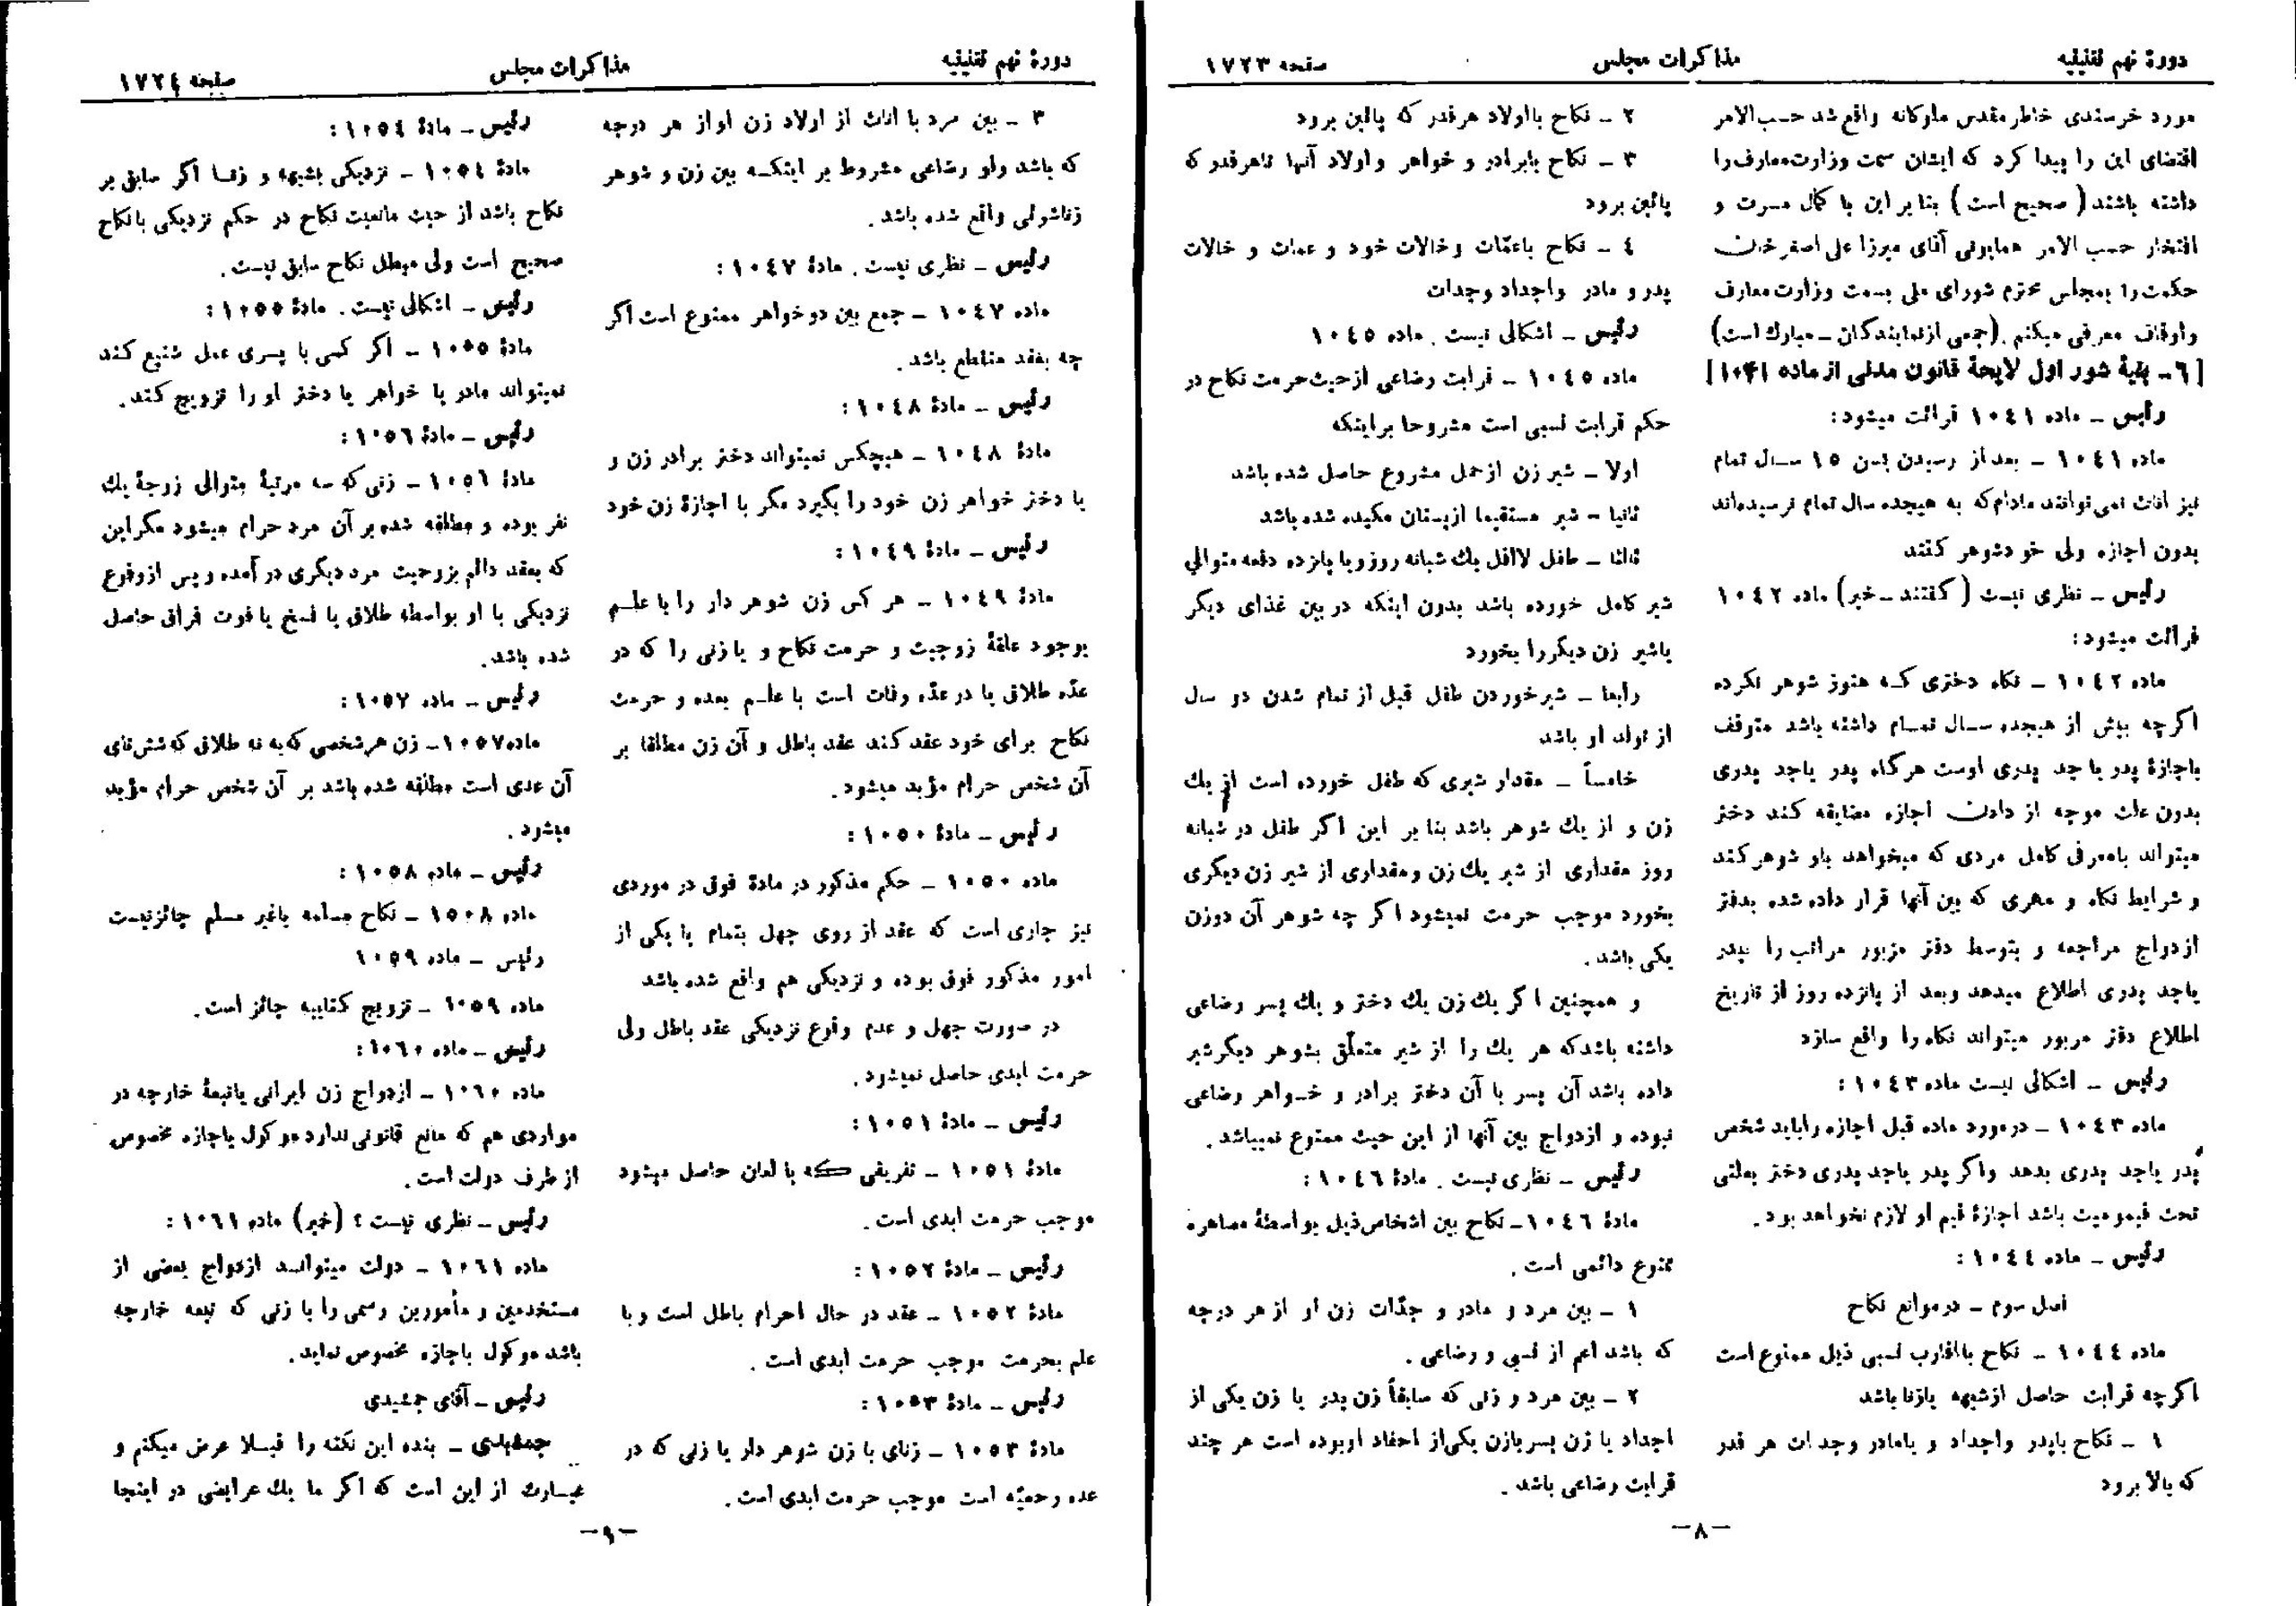 دورهٔ نهم تقنینیه
مذاکرات مجلس
صفحه ۱۷۲۳
مورد خرسندی خاطر مقدس ملوکانه واقع شد حسب‌الامر
اقتضای این را پیدا کرد که ایشان سمت وزارت معارف را
داشته باشند ( صحیح است ) بنابر این با کمال مسرت و
افتخار حسب الامر همایونی آقای میرزا علی اصغر خان
حکمت را بمجلس محترم شورای ملی بسمت وزارت معارف
واوقاف معرفی میکنم . (جمعی از نمایندگان ـ مبارك است)
[ ٦ ـ بقیهٔ شور اول لایحهٔ قانون مدنی از ماده ۱۰۴۱ ]
رئیس ـ ماده ۱۰٤۱ قرائت میشود:
ماده ۱۰٤۱ ـ بعد از رسیدن بسن ۱٥ سال تمام
نیز اناث نمی توانند مادام که به هیجده سال تمام نرسیده‌اند
بدون اجازه ولی خود شوهر کنند
رئیس ـ نظری نیست ( گفتند ـ خیر ) ماده ۱۰٤۲
قرائت میشود:
ماده ۱۰٤۲ ـ نکاه دختری که هنوز شوهر نکرده
اگر چه بیش از هیجده سال تمام داشته باشد متوقف
باجازهٔ پدر یا جد پدری اوست هرگاه پدر یاجد پدری
بدون علت موجه از دادن اجازه مضایقه کند دختر
میتواند بامعرفی کامل مردی که میخواهد باو شوهر کند
و شرایط نکاه و مهری که بین آنها قرار داده شده بدفتر
ازدواج مراجعه و بتوسط دفتر مزبور مراتب را بپدر
یاجد پدری اطلاع میدهد وبعد از پانزده روز از تاریخ
اطلاع دفتر مزبور میتواند نکاه را واقع سازد
رئیس ـ اشکالی نیست ماده ۱۰٤۳ :
ماده ۱۰٤۳ ـ در مورد ماده قبل اجازه را باید شخص
پدر یاجد پدری بدهد واگر پدر یاجد پدری دختر بعلتی
تحت قیمومیت باشد اجازهٔ قیم او لازم نخواهد بود .
رئیس ـ ماده ۱۰٤٤ :
فصل سوم ـ در موانع نکاح
ماده ۱۰٤٤ ـ نکاح بااقارب نسبی ذیل ممنوع است
اگر چه قرابت حاصل از شبهه یازنا باشد
۱ ـ نکاح باپدر واجداد و یامادر وجدات هر قدر
که بالا برود
۲ ـ نکاح بااولاد هر قدر که پائین برود
۳ ـ نکاح بابرادر و خواهر و اولاد آنها تاهر قدر که
پائین برود
٤ ـ نکاح باعمّات وخالات خود و عمات و خالات
پدر و مادر واجداد وجدات
رئیس ـ اشکالی نیست . ماده ۱۰٤٥
ماده ۱۰٤٥ ـ قرابت رضاعی از حیث حرمت نکاح در
حکم قرابت نسبی است مشروحا بر اینکه
اولا ـ شیر زن از حمل مشروع حاصل شده باشد
ثانیا ـ شیر مستقیما از پستان مکیده شده باشد
ثالثا ـ طفل لااقل یك شبانه روز و یا پانزده دفعه متوالی
شیر کامل خورده باشد بدون اینکه در بین غذای دیگر
یاشیر زن دیگر را بخورد
رابعا ـ شیر خوردن طفل قبل از تمام شدن دو سال
از تولد او باشد
خامساً ـ مقدار شیری که طفل خورده است از یك
زن و از یك شوهر باشد بنا بر این اگر طفل در شبانه
روز مقداری از شیر یك زن و مقداری از شیر زن دیگری
بخورد موجب حرمت نمیشود اگر چه شوهر آن دوزن
یکی باشد .
و همچنین اگر یك زن یك دختر و یك پسر رضاعی
داشته باشد که هر یك را از شیر متعلّق بشوهر دیگر شیر
داده باشد آن پسر با آن دختر برادر و خواهر رضاعی
نبوده و ازدواج بین آنها از این حیث ممنوع نمیباشد .
رئیس ـ نظری نیست . مادهٔ ۱۰٤٦ :
مادهٔ ۱۰٤٦ ـ نکاح بین اشخاص ذیل بواسطهٔ مصاهره
ممنوع دائمی است .
۱ ـ بین مرد و مادر و جدّات زن او از هر درجه
که باشد اعم از نسبی و رضاعی .
۲ ـ بین مرد و زنی که سابقاً زن پدر یا زن یکی از
اجداد یا زن پسر یازن یکی از احفاد او بوده است هر چند
قرابت رضاعی باشد .
ـ۸ـ
دورهٔ نهم تقنینیه
مذاکرات مجلس
صفحه ۱۷۲٤
۳ ـ بین مرد با اناث از اولاد زن او از هر درجه
که باشد ولو رضاعی مشروط بر اینکه بین زن و شوهر
زناشوئی واقع شده باشد .
رئیس ـ نظری نیست . مادهٔ ۱۰٤۷ :
ماده ۱۰٤۷ ـ جمع بین دو خواهر ممنوع است اگر
چه بعقد منقطع باشد .
رئیس ـ مادهٔ ۱۰٤۸ :
مادهٔ ۱۰٤۸ ـ هیچکس نمیتواند دختر برادر زن و
یا دختر خواهر زن خود را بگیرد مگر با اجازهٔ زن خود
رئیس ـ مادهٔ ۱۰٤۹ :
مادهٔ ۱۰٤۹ ـ هر کس زن شوهر دار را با علم
بوجود علقهٔ زوجیت و حرمت نکاح و یا زنی را که در
عدّه طلاق یا در عدّه وفات است با علم بعده و حرمت
نکاح برای خود عقد کند عقد باطل و آن زن مطلقا بر
آن شخص حرام مؤبد میشود .
رئیس ـ مادهٔ ۱۰٥۰ :
ماده ۱۰٥۰ ـ حکم مذکور در مادهٔ فوق در موردی
نیز جاری است که عقد از روی جهل بتمام یا یکی از
امور مذکور فوق بوده و نزدیکی هم واقع شده باشد
در صورت جهل و عدم وقوع نزدیکی عقد باطل ولی
حرمت ابدی حاصل نمیشود .
رئیس ـ مادهٔ ۱۰٥۱ :
مادهٔ ۱۰٥۱ ـ تفریقی که با لعان حاصل میشود
موجب حرمت ابدی است .
رئیس ـ مادهٔ ۱۰٥۲ :
مادهٔ ۱۰٥۲ ـ عقد در حال احرام باطل است و با
علم بحرمت موجب حرمت ابدی است .
رئیس ـ مادهٔ ۱۰٥۳ :
مادهٔ ۱۰٥۳ ـ زنای با زن شوهر دار یا زنی که در
عده رجعیّه است موجب حرمت ابدی است .
رئیس ـ مادهٔ ۱۰٥٤ :
مادهٔ ۱۰٥٤ ـ نزدیکی بشبهه و زنا اگر سابق بر
نکاح باشد از حیث مانعیت نکاح در حکم نزدیکی بانکاح
صحیح است ولی مبطل نکاح سابق نیست .
رئیس ـ اشکالی نیست . مادهٔ ۱۰٥٥ :
مادهٔ ۱۰٥٥ ـ اگر کسی با پسری عمل شنیع کند
نمیتواند مادر یا خواهر یا دختر او را تزویج کند .
رئیس ـ مادهٔ ۱۰٥٦ :
مادهٔ ۱۰٥٦ ـ زنی که سه مرتبهٔ متوالی زوجهٔ یك
نفر بوده و مطلقه شده بر آن مرد حرام میشود مگر این
که بعقد دائم بزوجیت مرد دیگری در آمده و پس از وقوع
نزدیکی با او بواسطه طلاق یا فسخ یا فوت فراق حاصل
شده باشد .
رئیس ـ ماده ۱۰٥۷ :
ماده ۱۰٥۷ ـ زن هر شخصی که به نه طلاق که شش تای
آن عدی است مطلقه شده باشد بر آن شخص حرام مؤبد
میشود .
رئیس ـ ماده ۱۰٥۸ :
ماده ۱٥۰۸ ـ نکاح مسلمه باغیر مسلم جائز نیست
رئیس ـ ماده ۱۰٥۹
ماده ۱۰٥۹ ـ تزویج کتابیه جائز است .
رئیس ـ ماده ۱۰٦۰ :
ماده ۱۰٦۰ ـ ازدواج زن ایرانی باتبعهٔ خارجه در
مواردی هم که مانع قانونی ندارد موکول باجازه مخصوص
از طرف دولت است .
رئیس ـ نظری نیست ؟ (خیر) ماده ۱۰٦۱ :
ماده ۱۰٦۱ ـ دولت میتواند ازدواج بعضی از
مستخدمین و مأمورین رسمی را با زنی که تبعه خارجه
باشد موکول باجازه مخصوص نماید .
رئیس ـ آقای جمشیدی
جمشیدی ـ بنده این نکته را قبلا عرض میکنم و
عبارت از این است که اگر ما یك عرایضی در اینجا
ـ۹ـ